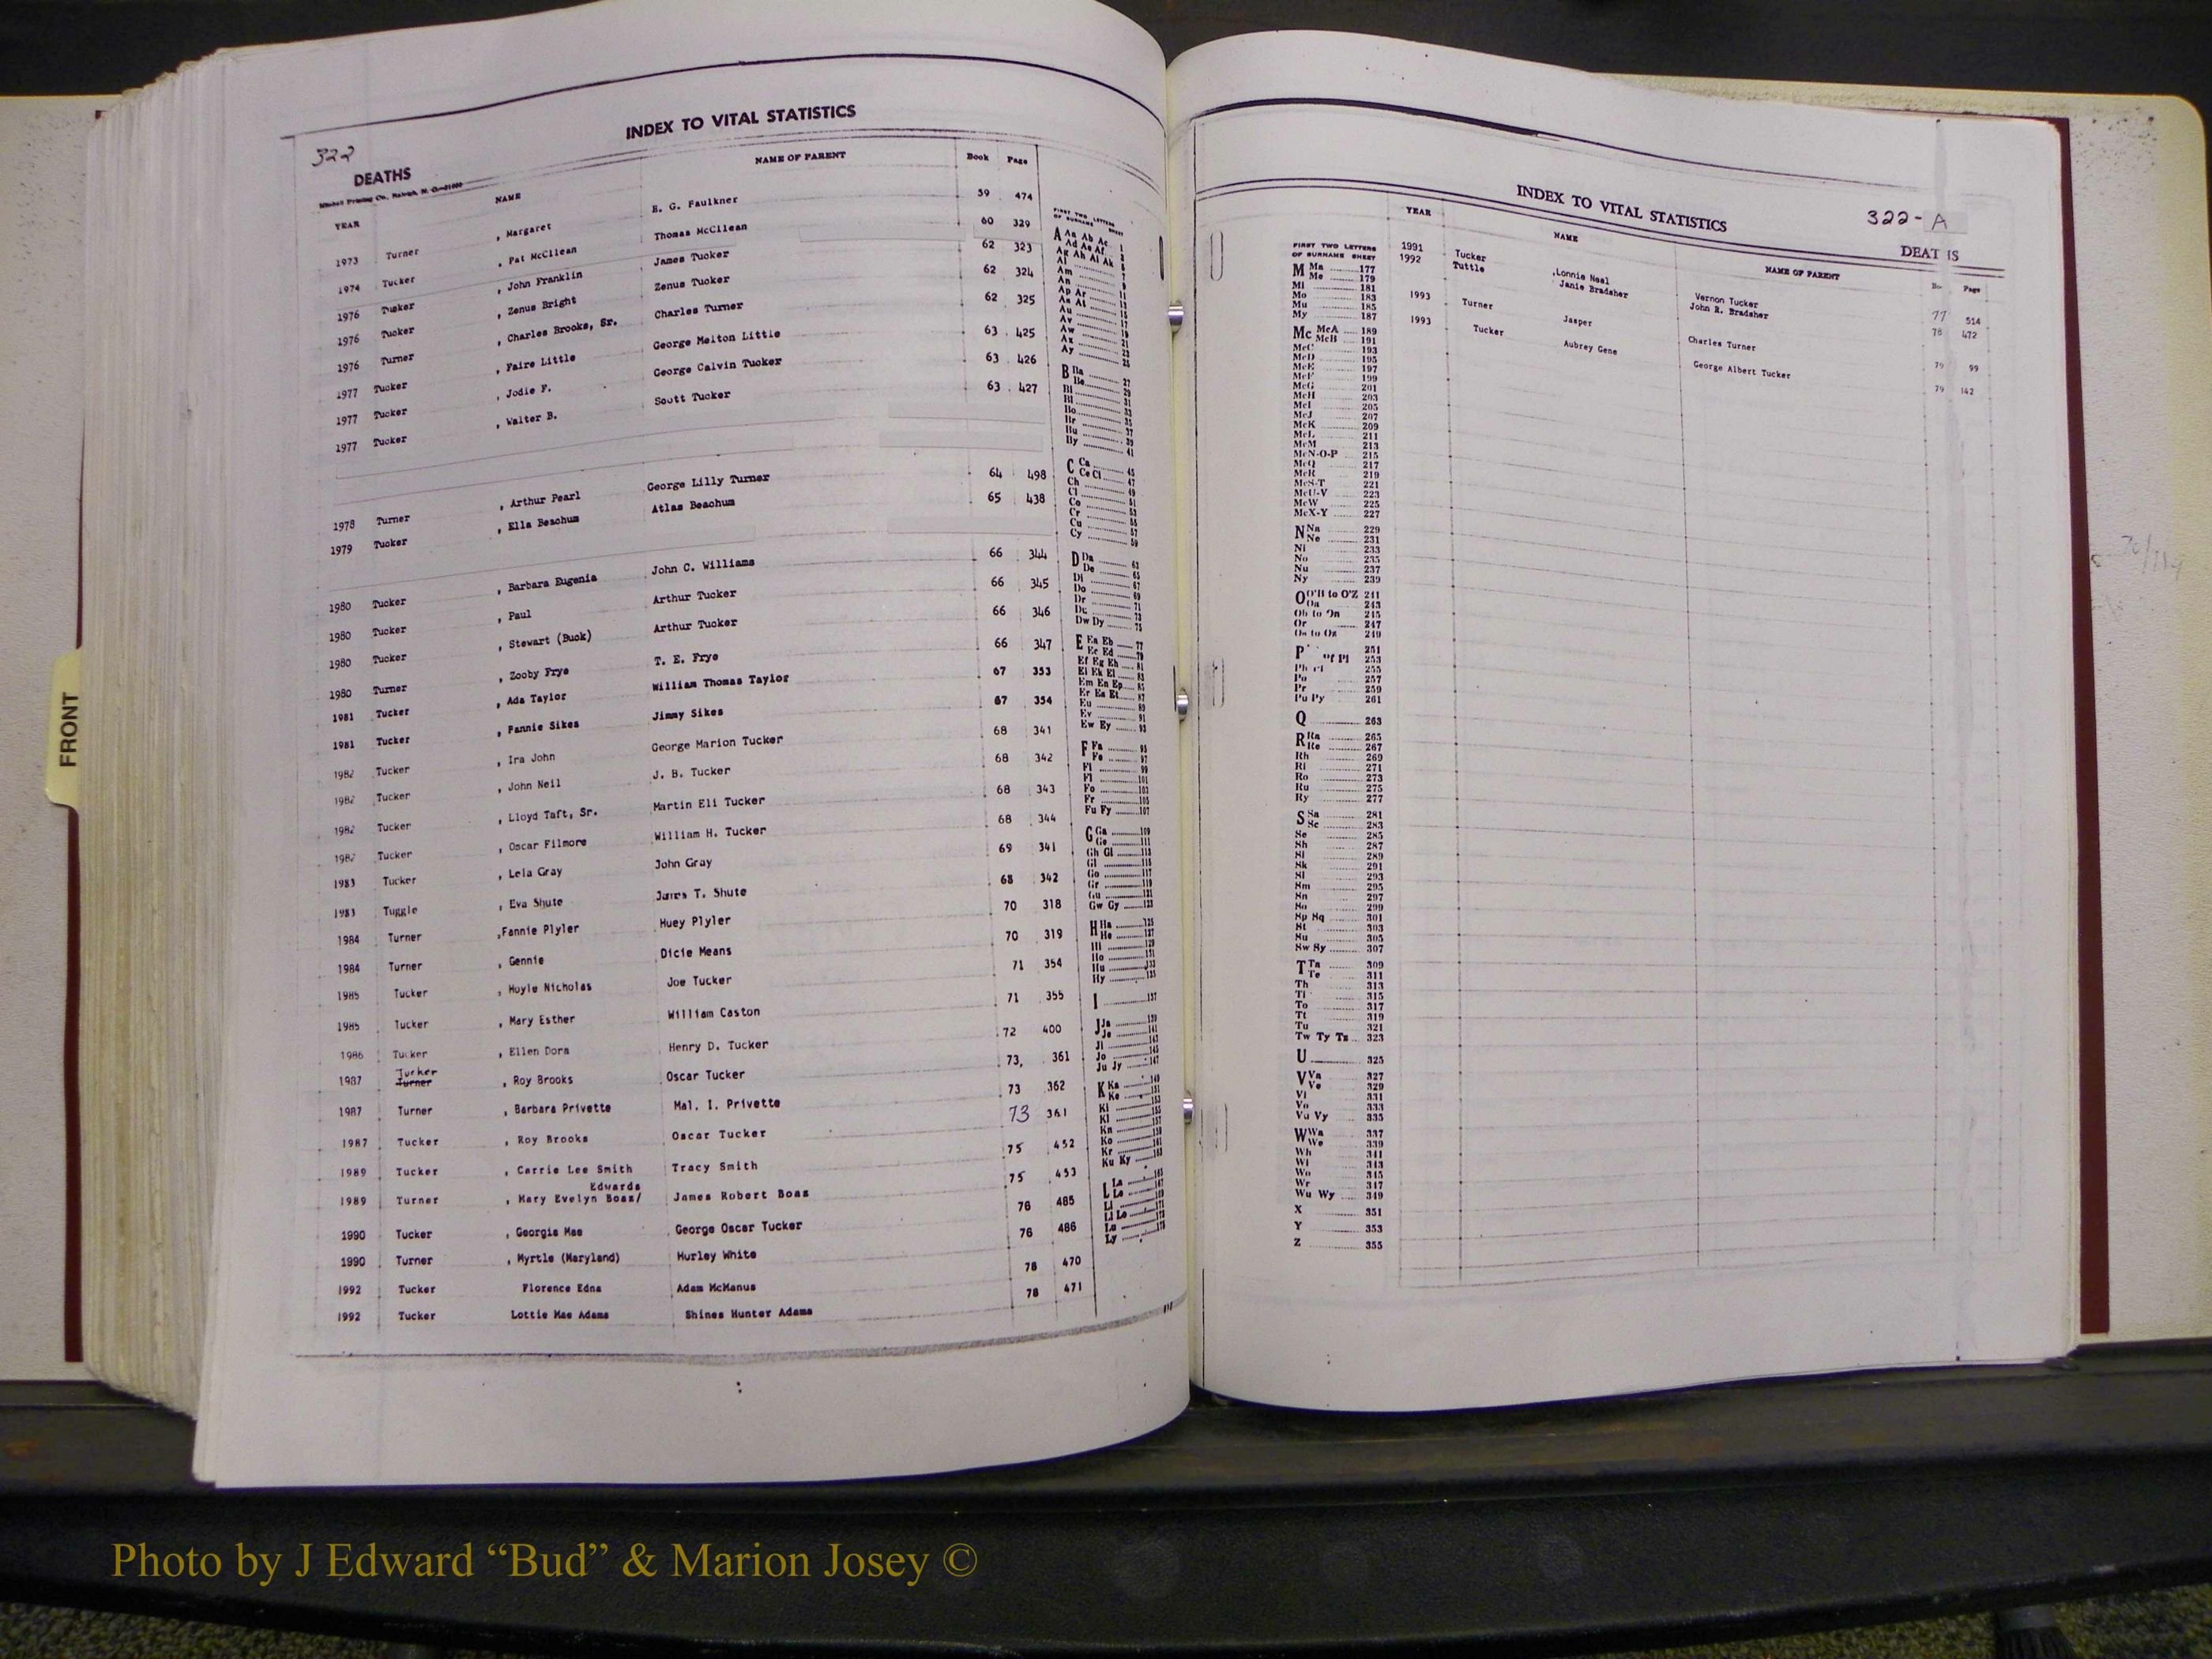 322
INDEX TO VITAL STATISTICS
DEATHS
YEAR NAME NAME OF PARENT Book Page
1973 Turner , Margaret E. G. Faulkner 59 474
1974 Tucker , Pat McCllean Thomas McCllean 60 329
1976 Tucker , John Franklin James Tucker 62 323
1976 Tucker , Zenus Bright Zenus Tucker 62 324
1976 Turner , Charles Brooks, Sr. Charles Turner 62 325
1977 Tucker , Faire Little George Melton Little 63 425
1977 Tucker , Jodie F. George Calvin Tucker 63 426
1977 Tucker , Walter B. Scott Tucker 63 427
1978 Turner , Arthur Pearl George Lilly Turner 64 498
1979 Tucker , Ella Beachum Atlas Beachum 65 438
1980 Tucker , Barbara Eugenia John C. Williams 66 344
1980 Tucker , Paul Arthur Tucker 66 345
1980 Tucker , Stewart (Buck) Arthur Tucker 66 346
1980 Turner , Zooby Frye T. E. Frye 66 347
1981 Tucker , Ada Taylor William Thomas Taylor 67 353
1981 Tucker , Fannie Sikes Jimmy Sikes 67 354
1982 Tucker , Ira John George Marion Tucker 68 341
1982 Tucker , John Neil J. B. Tucker 68 342
1982 Tucker , Lloyd Taft, Sr. Martin Eli Tucker 68 343
1982 Tucker , Oscar Filmore William H. Tucker 68 344
1983 Tucker , Lela Gray John Gray 69 341
1983 Tuggle , Eva Shute James T. Shute 68 342
1984 Turner ,Fannie Plyler Huey Plyler 70 318
1984 Turner , Gennie Dicie Means 70 319
1985 Tucker , Hoyle Nicholas Joe Tucker 71 354
1985 Tucker , Mary Esther William Caston 71 355
1986 Tucker , Ellen Dora Henry D. Tucker 72 400
Tucker
1987 Turner , Roy Brooks Oscar Tucker 73, 361
1987 Turner , Barbara Privette Mal. I. Privette 73 362
1987 Tucker , Roy Brooks Oscar Tucker 73 361
1989 Tucker , Carrie Lee Smith Tracy Smith 75 452
Edwards
1989 Turner , Mary Evelyn Boas/ James Robert Boas 75 453
1990 Tucker , Georgia Mae George Oscar Tucker 76 485
1990 Turner , Myrtle (Maryland) Hurley White 76 486
1992 Tucker Florence Edna Adam McManus 78 470
1992 Tucker Lottie Mae Adams Shines Hunter Adams 78 471
FIRST TWO LETTERS
OF SURNAME SHEET
A Aa Ab Ac
Ad Ae Af
Ag Ah Ai Ak
Al
Am
An
Ap Ar
As At
Au
Av
Aw
Ax
Ay
B Ba 27
C Ca 45
Ce Ci 47
Ch 49
Cl 51
Co 53
Cr 55
Cu 57
Cy 59
D Da 63
De 65
Di 67
Do 69
Dr 71
Dw Dy 75
E Ea Eb 77
Ec Ed 79
Ef Eg Eh 81
Ei Ek El 83
Em En Ep 85
Er Es Et 87
Eu 89
Ev 91
Ew Ey 93
F Fa 95
Fe 97
Fi 99
Fl 101
Fo 103
Fr 105
Fu Fy 107
G Ga 109
Ge 111
Gh Gi 113
Gl 115
Go 117
Gr 119
Gu 121
Gw Gy 123
H Ha 125
He
Hi 129
Ho 131
Hu 133
Hy 135
I 137
J Ja
Je 141
Ji 143
Jo 145
Ju Jy 147
K Ka
Ke 151
Ki 153
Kl
Kn
Ko
Kr
Ku Ky
L La
Le
Li
Lo
Lu
Ly
322-A
INDEX TO VITAL STATISTICS
DEAT IS
YEAR NAME NAME OF PARENT Page
1991 Tucker ,Lonnie Neal Vernon Tucker 77 514
1992 Tuttle Janie Bradsher John R. Bradsher 78 472
1993 Turner Jasper Charles Turner 79 99
1993 Tucker Aubrey Gene George Albert Tucker 79 142
FIRST TWO LETTERS
OF SURNAME SHEET
M Ma 177
Me 179
Mi 181
Mo 183
Mu 185
My 187
Mc McA 189
McB 191
McC 193
McD 195
McE 197
McF 199
McG 201
McH 203
McI 205
McJ 207
McK 209
McL 211
McM 213
McN-O-P 215
McQ 217
McR 219
McS-T 221
McU-V 223
McW 225
McX-Y 227
N Na 229
Ne 231
Ni 233
No 235
Nu 237
Ny 239
O O'B to O'Z 241
Oa 243
Ob to On 245
Or 247
Os to Oz 249
P 251
Pf Pl 253
Ph 255
Po 257
Pr 259
Pu Py 261
Q 263
R Ra 265
Re 267
Rh 269
Ri 271
Ro 273
Ru 275
Ry 277
S Sa 281
Sc 283
Se 285
Sh 287
Si 289
Sk 291
Sl 293
Sm 295
Sn 297
So 299
Sp Sq 301
St 303
Su 305
Sw Sy 307
T Ta 309
Te 311
Th 313
Ti 315
To 317
Tt 319
Tu 321
Tw Ty Tz 323
U 325
V Va 327
Ve 329
Vi 331
Vo 333
Vu Vy 335
W Wa 337
We 339
Wh 341
Wi 343
Wo 345
Wr 347
Wu Wy 349
X 351
Y 353
Z 355
FRONT
Photo by J Edward “Bud” & Marion Josey ©